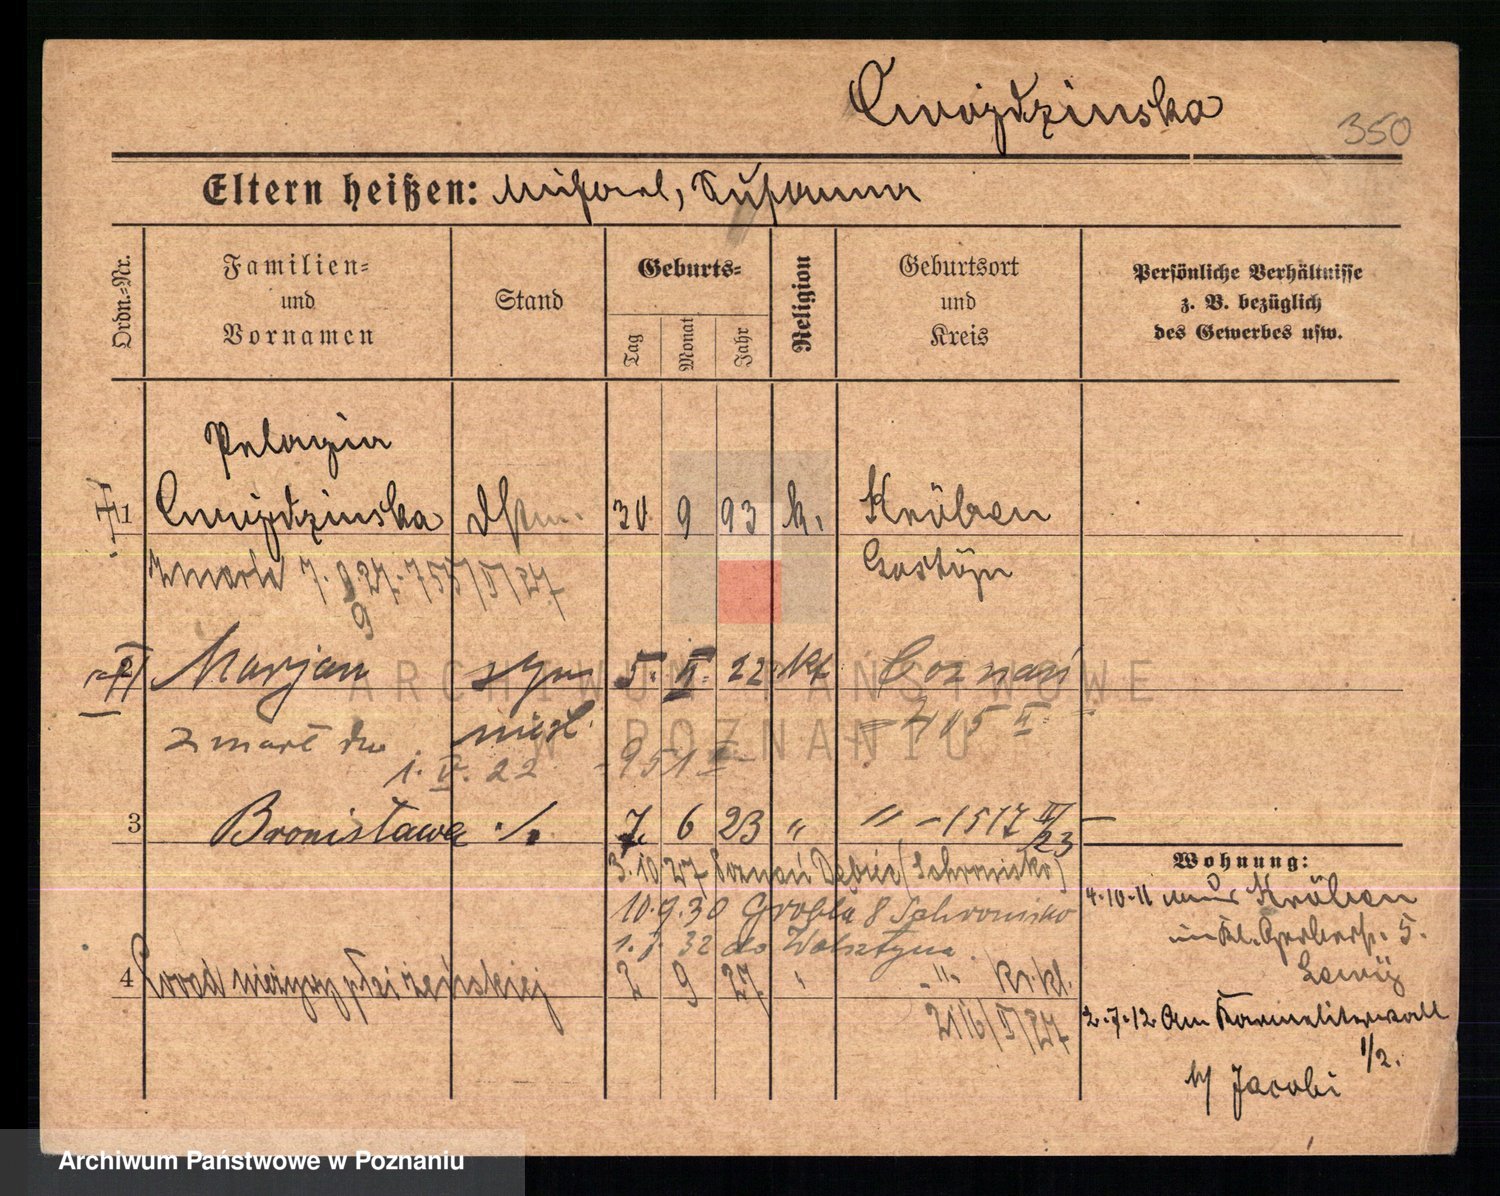 Cwojdzinska
350
Eltern heißen: Michael, Susanna
Ordn.=Nr.
Familien= und Vornamen
Stand
Geburts=
Tag
Monat
Jahr
Religion
Geburtsort und Kreis
Persönliche Verhältnisse z. B. bezüglich des Gewerbes usw.
Pelagia
1 Cwojdzinska 30. 9 93 k. Kröben
Zmarła 7. 9 27. 755/V/27 Gostyn
9
2 Marjan syn 5. II. 22 kt Poznań
nieśl. 715 II.
zmarł dn.
1. IV. 22 - 951
3 Bronisława ./. 7. 6 23 " " - 1517 III/23 -
3.10.27 Poznań Dębiec (Schronisko)
10.9.30 Grobla 8 Schronisko
1. 32 do Wolsztyna.
4 Płód nieżywy płci żeńskiej 2 9 27 " - " -
2116/V/27
Wohnung:
4.10.11 Kröben
Gerberstr. 5.
2.7.12 Am Karmeliterwall
1/2.
b/ Jacobi
ARCHIWUM PAŃSTWOWE
W POZNANIU
Archiwum Państwowe w Poznaniu